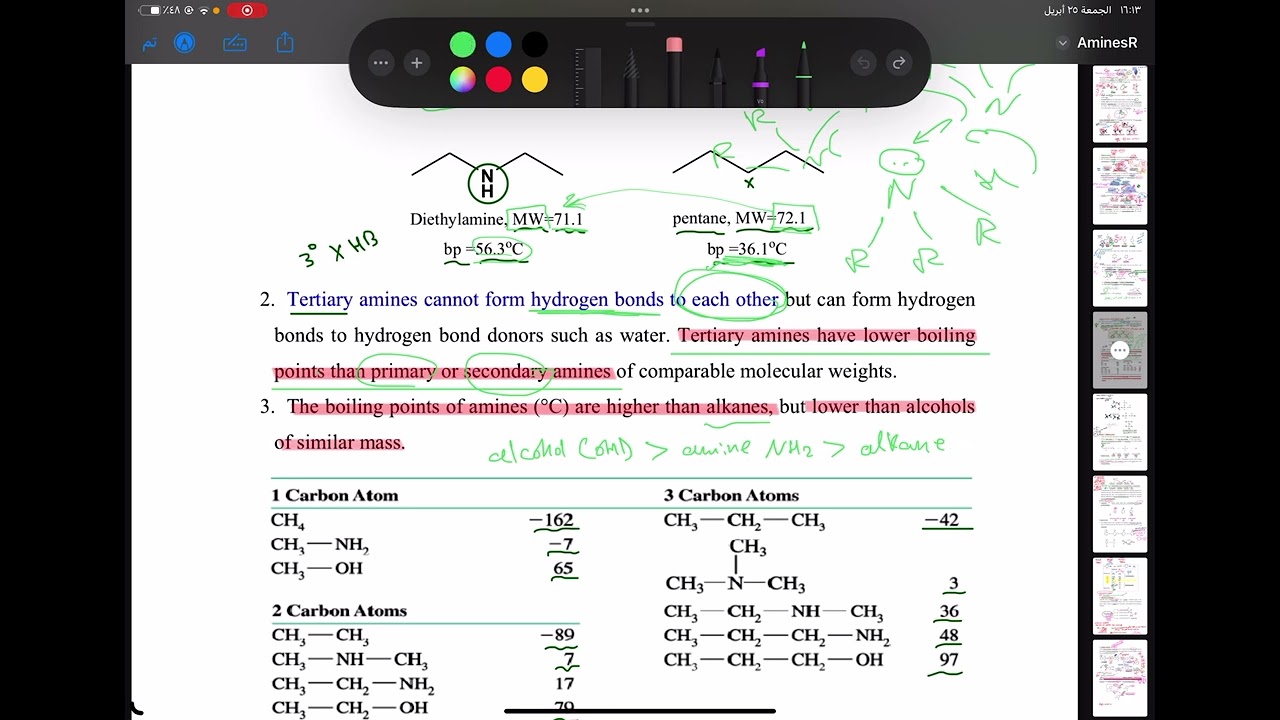 ١٦:١٣ الجمعة ٢٥ أبريل
٪٤٨
تم
AminesR
R
R
N
H
x
N
R
R
MW=71.1
pentane, MW=72.1
3° X HB
bp =36.1°C
2. Tertiary amines cannot form hydrogen bonds to each other, but can form hydrogen
bonds to hydrogen bond donors such as water. Tertiary amines have lower boiling
points than primary or secondary amines of comparable molecular weights.
3. The boiling points of amines (°C) are higher than alkanes, but lower than alcohols
of similar mass.
alcohol (OH) > amine NH2 > alkane
1 Carbon Atom
CH4 −162
CH3—NH2 −7
CH3—OH 65
2 Carbon Atoms
CH3—CH3 −89
CH3—NH—CH3 7
CH3—CH2—NH2 17
CH3—CH2—OH 79
3 Carbon Atoms
CH3—CH2—CH3 −42
CH3
CH3—N—CH3 3
CH3—CH2—NH—CH3 36
CH3—CH2—CH2—NH2 48
CH3—CH2—CH2—OH 97